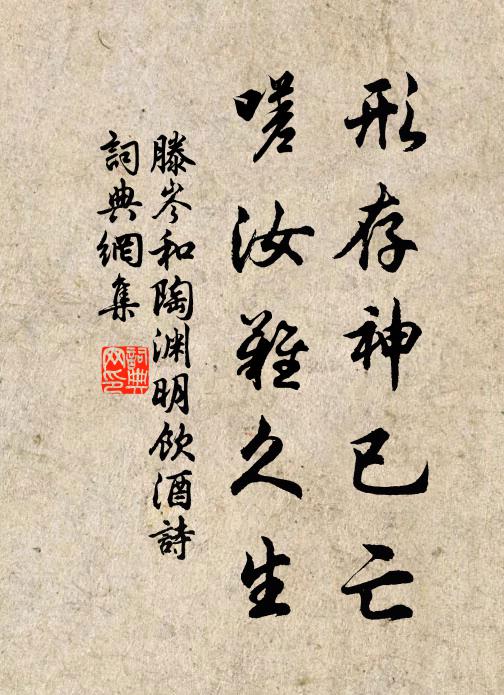 形存神已亡
嗟汝難久生
滕岑和陶淵明飲酒詩
詞典網集
詞典網印